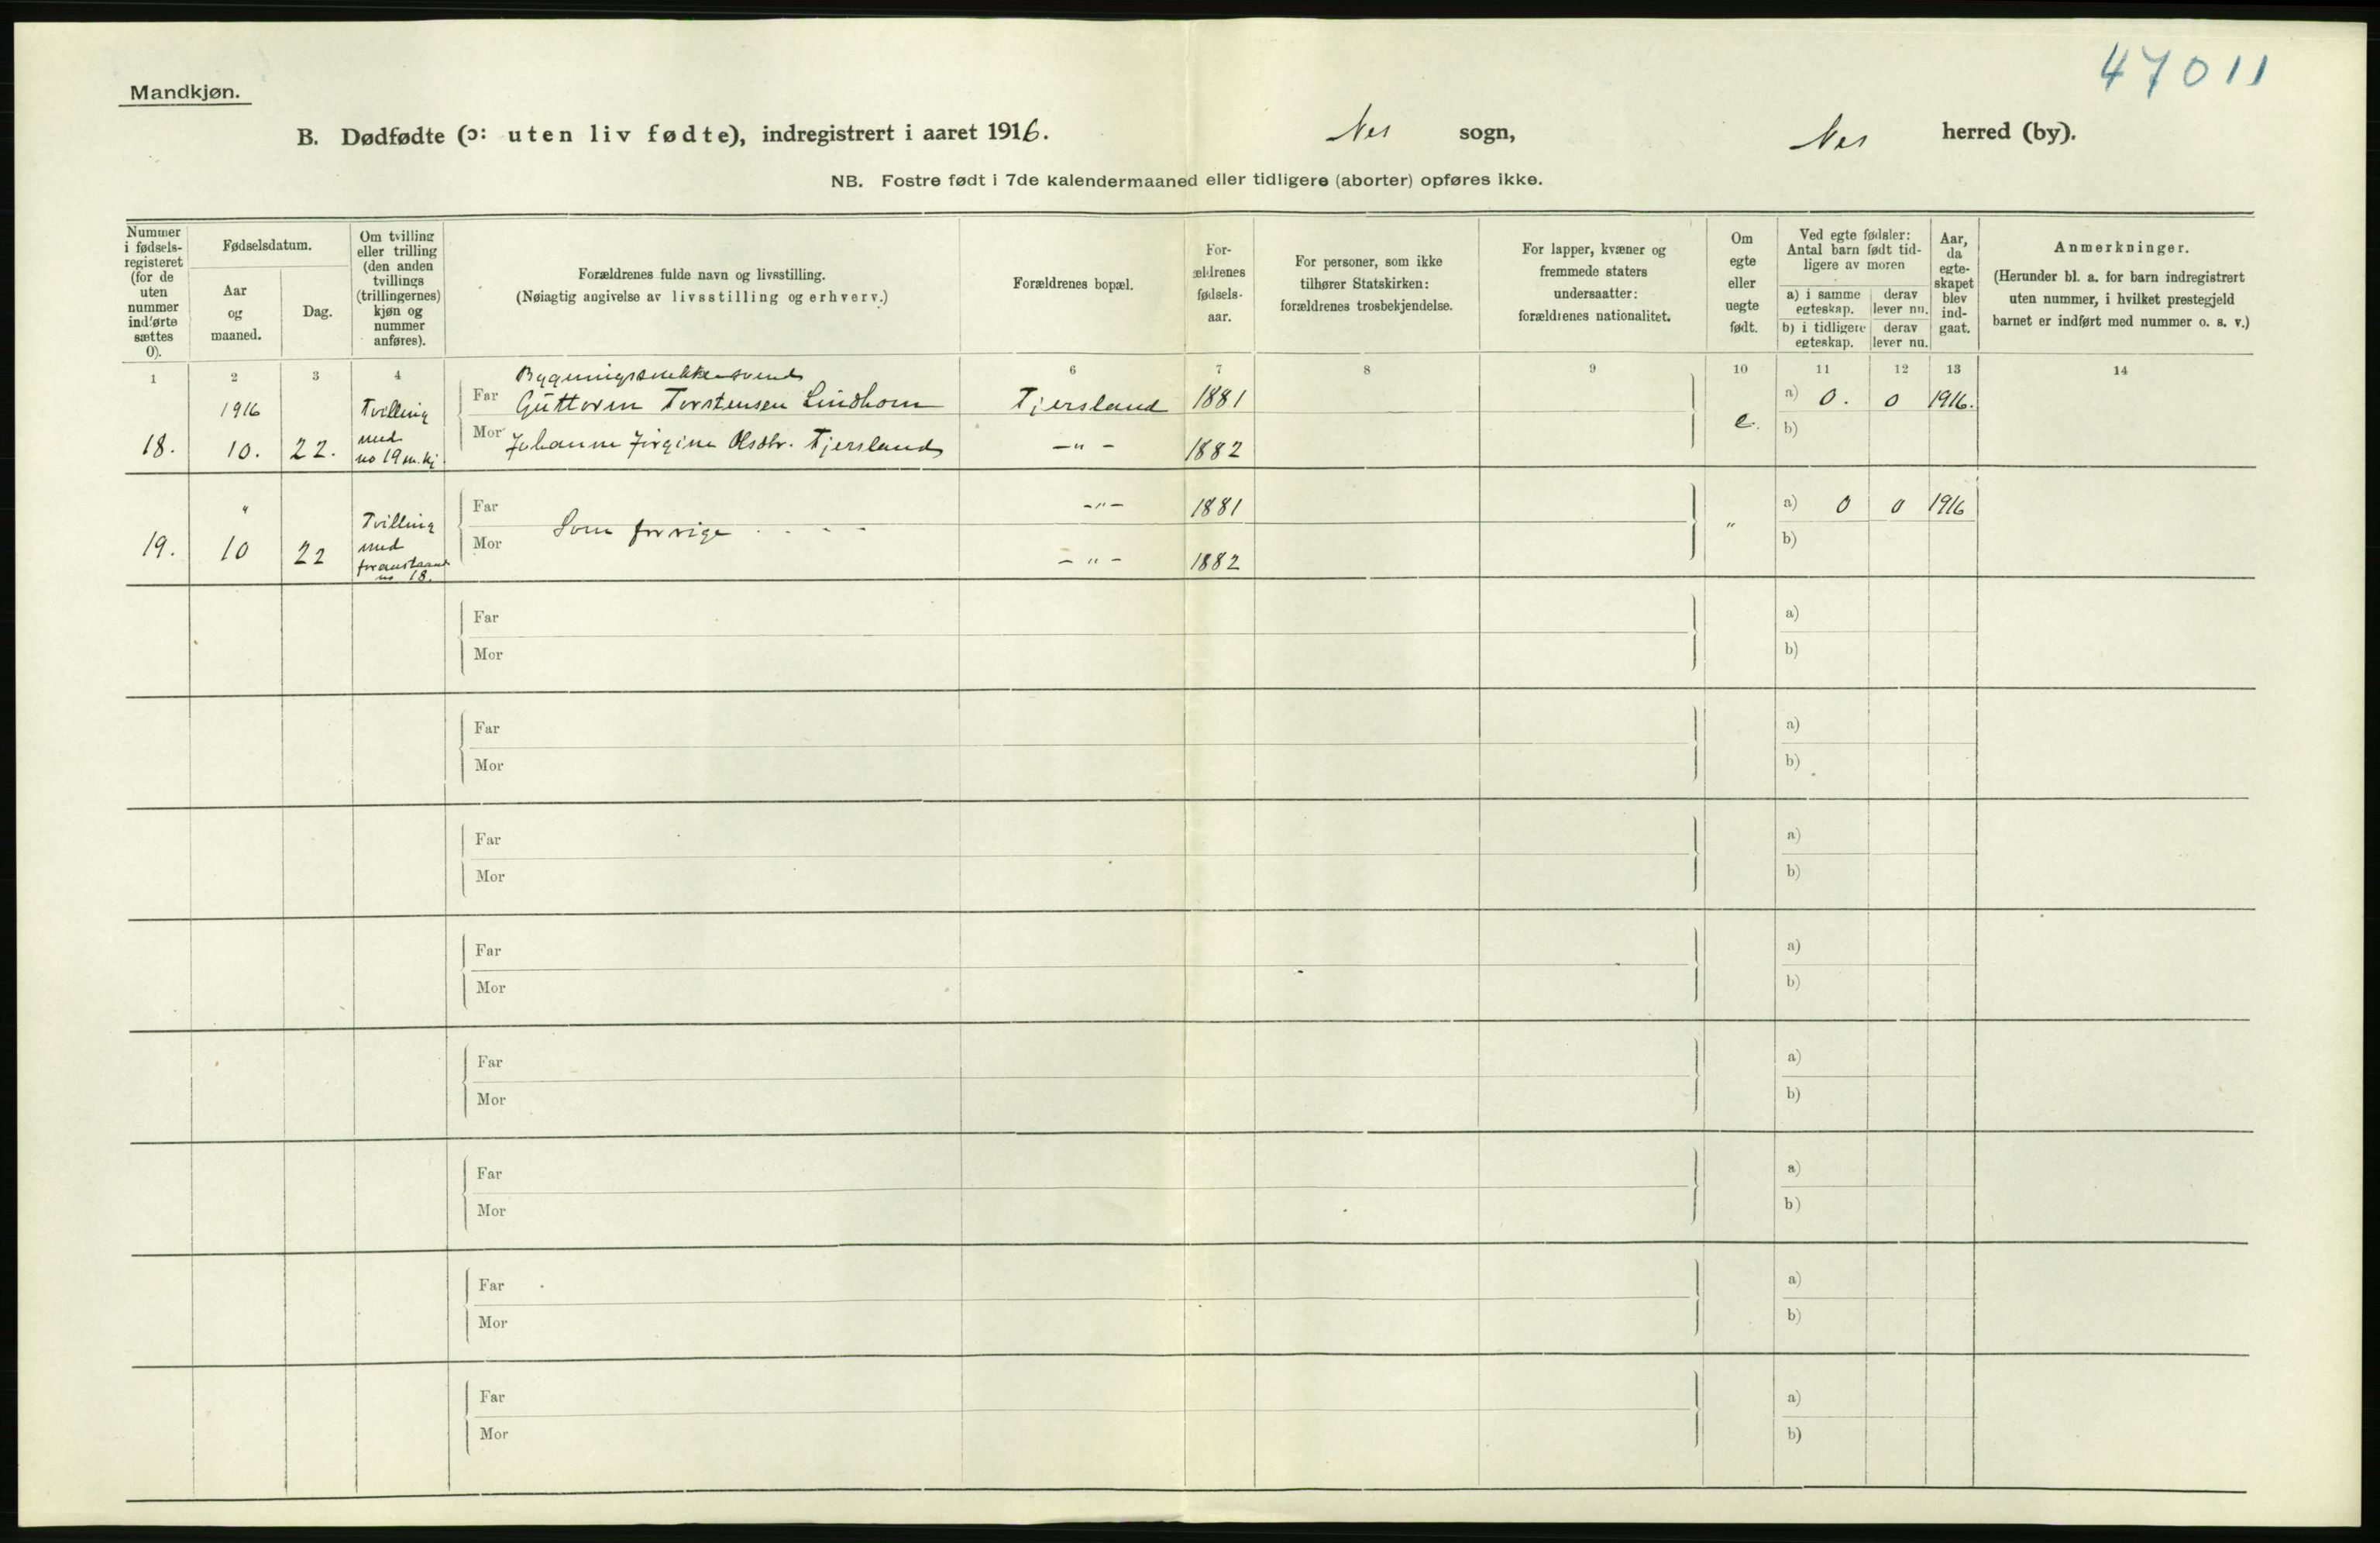 47011
Mandkjøn.
B. Dødfødte (ɔ: uten liv fødte), indregistrert i aaret 1916. Nes sogn, Nes herred (by).
NB. Fostre født i 7de kalendermaaned eller tidligere (aborter) opføres ikke.
Nummer i fødsels-registeret (for de uten nummer indførte sættes 0).
Fødselsdatum.
Aar og maaned.
Dag.
Om tvilling eller trilling (den anden tvillings (trillingernes) kjøn og nummer anføres).
Forældrenes fulde navn og livsstilling.
(Nøiagtig angivelse av livsstilling og erhverv.)
Forældrenes bopæl.
For-ældrenes fødsels-aar.
For personer, som ikke tilhører Statskirken: forældrenes trosbekjendelse.
For lapper, kvæner og fremmede staters undersaatter: forældrenes nationalitet.
Om egte eller uegte født.
Ved egte fødsler: Antal barn født tid-ligere av moren
a) i samme egteskap. derav lever nu.
b) i tidligere egteskap. derav lever nu.
Aar, da egte-skapet blev ind-gaat.
Anmerkninger.
(Herunder bl. a. for barn indregistrert uten nummer, i hvilket prestegjeld barnet er indført med nummer o. s. v.)
1 2 3 4 6 7 8 9 10 11 12 13 14
Bygningssnekkersvend
1916 Tvilling Far Guttorm Torstensen Lindhom Tjersland 1881 a) 0. 0 1916.
18. 10. 22. med no 19 m.kj Mor Johanne Jørgine Olsdtr. Tjersland -"- 1882 e. b)
" Tvilling Far -"- 1881 a) 0 0 1916
19. 10 22 med foranstaaende no 18. Mor Som forrige -"- 1882 " b)
Far a)
Mor b)
Far a)
Mor b)
Far a)
Mor b)
Far a)
Mor b)
Far a)
Mor b)
Far a)
Mor b)
Far a)
Mor b)
Far a)
Mor b)